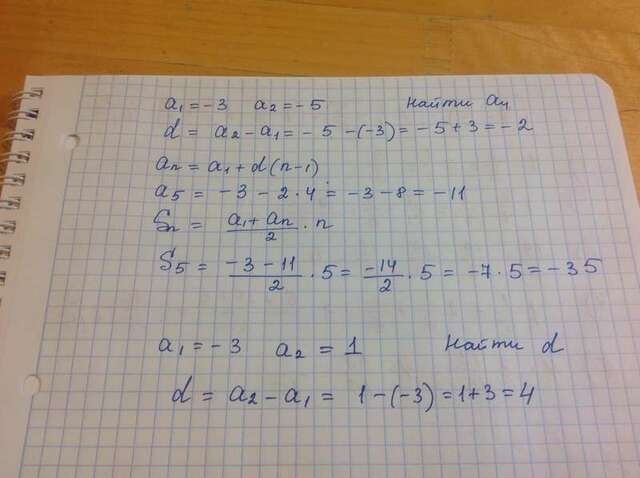 a₁ = -3 a₂ = -5 Найти a₄
d = a₂ - a₁ = - 5 - (-3) = - 5 + 3 = - 2
aₙ = a₁ + d (n - 1)
a₅ = -3 - 2 · 4 = -3 - 8 = -11
Sₙ = (a₁ + aₙ)/2 · n
S₅ = (-3 - 11)/2 · 5 = -14/2 · 5 = -7 · 5 = -35
a₁ = -3 a₂ = 1 Найти d
d = a₂ - a₁ = 1 - (-3) = 1 + 3 = 4